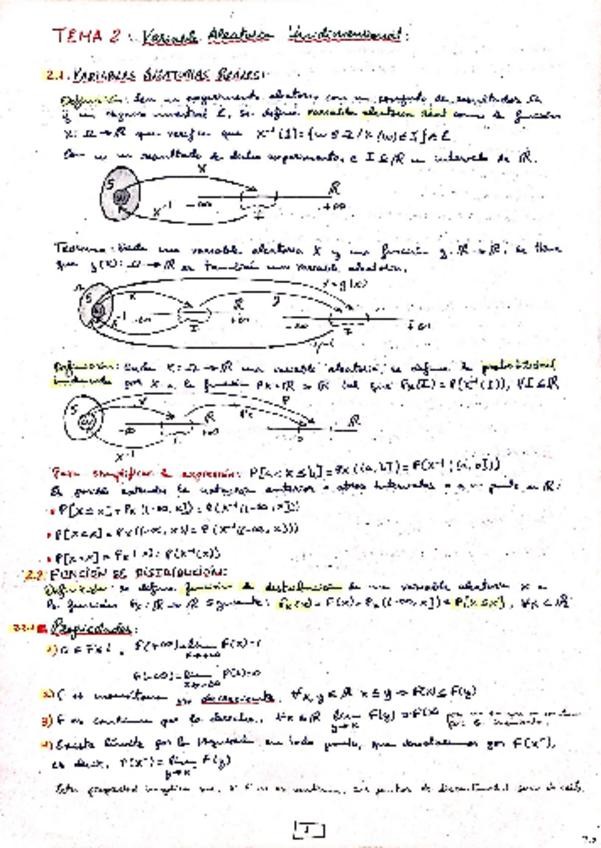 TEMA 2: Variable Aleatoria Unidimensional:
2.1. VARIABLES ALEATORIAS REALES:
Definición: Sea un experimento aleatorio con un conjunto de resultados Ω
se define variable aleatoria real como la función
X: Ω → R que verifica que X⁻¹(I) = {w ∈ Ω / X(w) ∈ I} ∈
Con w un resultado de dicho experimento, e I ⊆ R un intervalo de R.
S X R
w
X⁻¹ -∞ I +∞
Teorema: Dada una variable aleatoria X y una función g: R → R, se tiene
que g(X): Ω → R es también una variable aleatoria.
Y = g(X)
Ω S X R g
X⁻¹ -∞ I +∞ -∞ I +∞
Definición: Dada X: Ω → R una variable aleatoria, se define la probabilidad
inducida por X a la función Px: R → R tal que Px(I) = P(X⁻¹(I)), ∀I ⊆ R
S X R Px P R
w -∞ I +∞
X⁻¹
Para simplificar la expresión: P[a < X ≤ b] = Px((a, b]) = P(X⁻¹((a, b]))
Se puede extender la notación anterior a otros intervalos o a un punto en R:
• P[X ≤ x] = Px((-∞, x]) = P(X⁻¹((-∞, x]))
• P[X < x] = Px((-∞, x)) = P(X⁻¹((-∞, x)))
• P[X = x] = Px(x) = P(X⁻¹(x))
2.2. FUNCIÓN DE DISTRIBUCIÓN:
Definición: se define función de distribución de una variable aleatoria X a
la función Fx: R → R siguiente: Fx(x) = F(x) = Px((-∞, x]) = P[X ≤ x], ∀x ∈ R
2.2.1 Propiedades:
1) 0 ≤ F ≤ 1, F(+∞) = lim F(x) = 1
x→+∞
F(-∞) = lim F(x) = 0
x→-∞
2) F es monótona no decreciente, ∀x, y ∈ R x ≤ y ⇒ F(x) ≤ F(y)
3) F es continua por la derecha, ∀x ∈ R lim F(y) = F(x)
4) Existe límite por la izquierda en todo punto, que denotaremos por F(x⁻),
es decir, F(x⁻) = lim F(y)
Esta propiedad implica que, si F no es continua, sus puntos de discontinuidad son de salto.
1